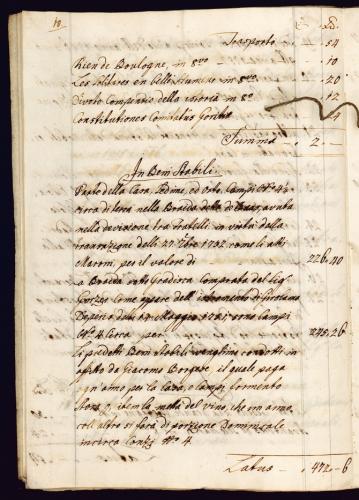 18.
Trasporto — . 54
Rien de Boulogne, in 8vo — . 10
Les solitaires en belle humeur in 8vo. . 20
Divoto Compendio della in 8o . 12
Constitutiones Comitatus Goritiæ . 4
Summa — . 2 . —
In Beni Stabili.
Parte della Casa, Sedime, ed orto, Campi No 4½
circa di terra nella Braida
nella divisione tra fratelli in virtù della
delli 27 7bre 1702 come li atti
Maroni, per il valore di 226.40
a Braida sotto Gradisca Comprata dal Sigr
come appare dell' instromento di Girolamo
Maggio 1721 sono Campi
No 4 Circa per 245.26
Li predetti Beni Stabili vengono condotti in
affitto da Giacomo Borgate il quale paga
ogn'anno per la Casa, e Campi, formento
Stara 9 item la metà del vino, che un anno
coll'altro si farà di porzione Dominicale
incirca Conzi No 4
Latus — . 472 . 6